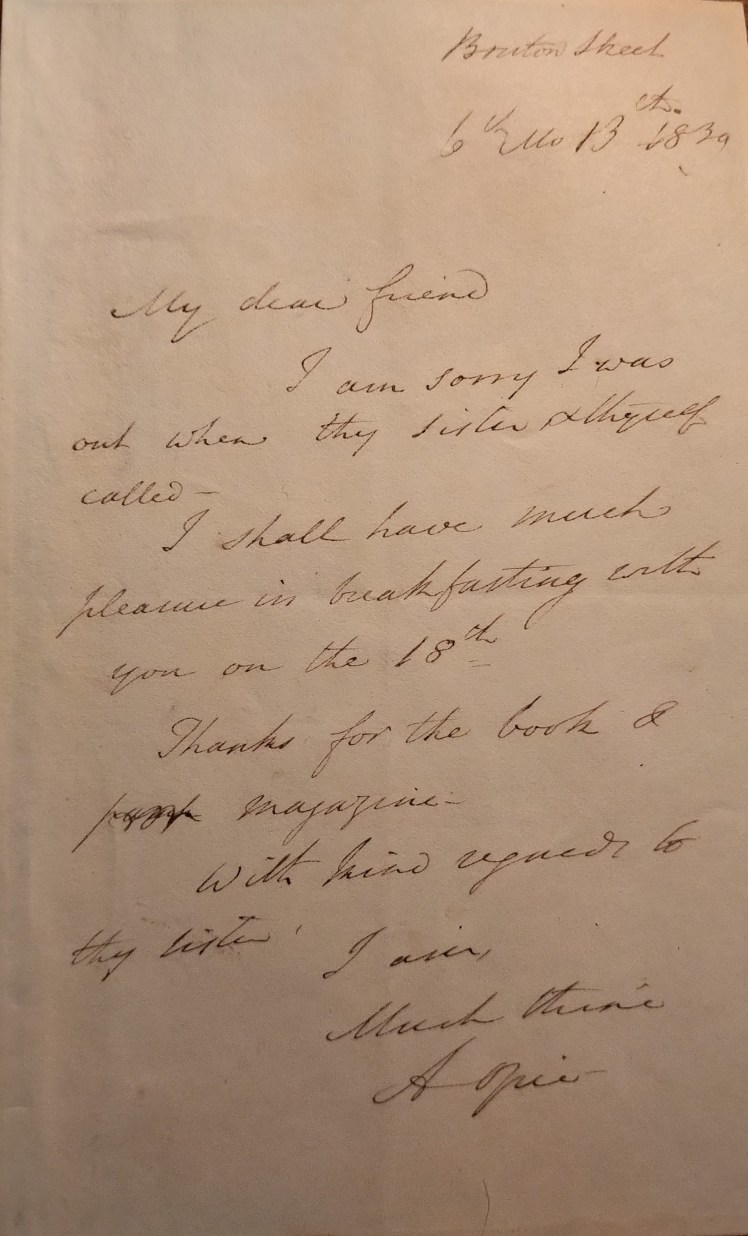 Bruton Street
6th Mo 13th 1839
My dear friend
I am sorry I was
out when thy sister & thyself
called –
I shall have much
pleasure in breakfasting with
you on the 18th
Thanks for the book &
magazine –
With kind regards to
thy sister
I am,
Much thine
A Opie